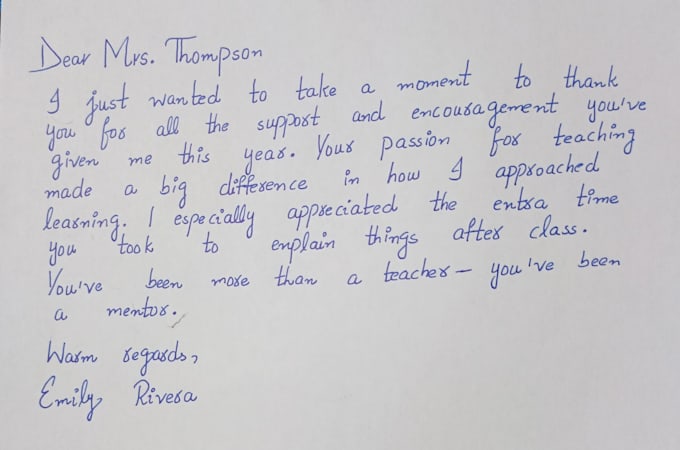 Dear Mrs. Thompson
I just wanted to take a moment to thank
you for all the support and encouragement you've
given me this year. Your passion for teaching
made a big difference in how I approached
learning. I especially appreciated the entra time
you took to enplain things after class.
You've been more than a teacher – you've been
a mentor.
Warm regards,
Emily Rivera